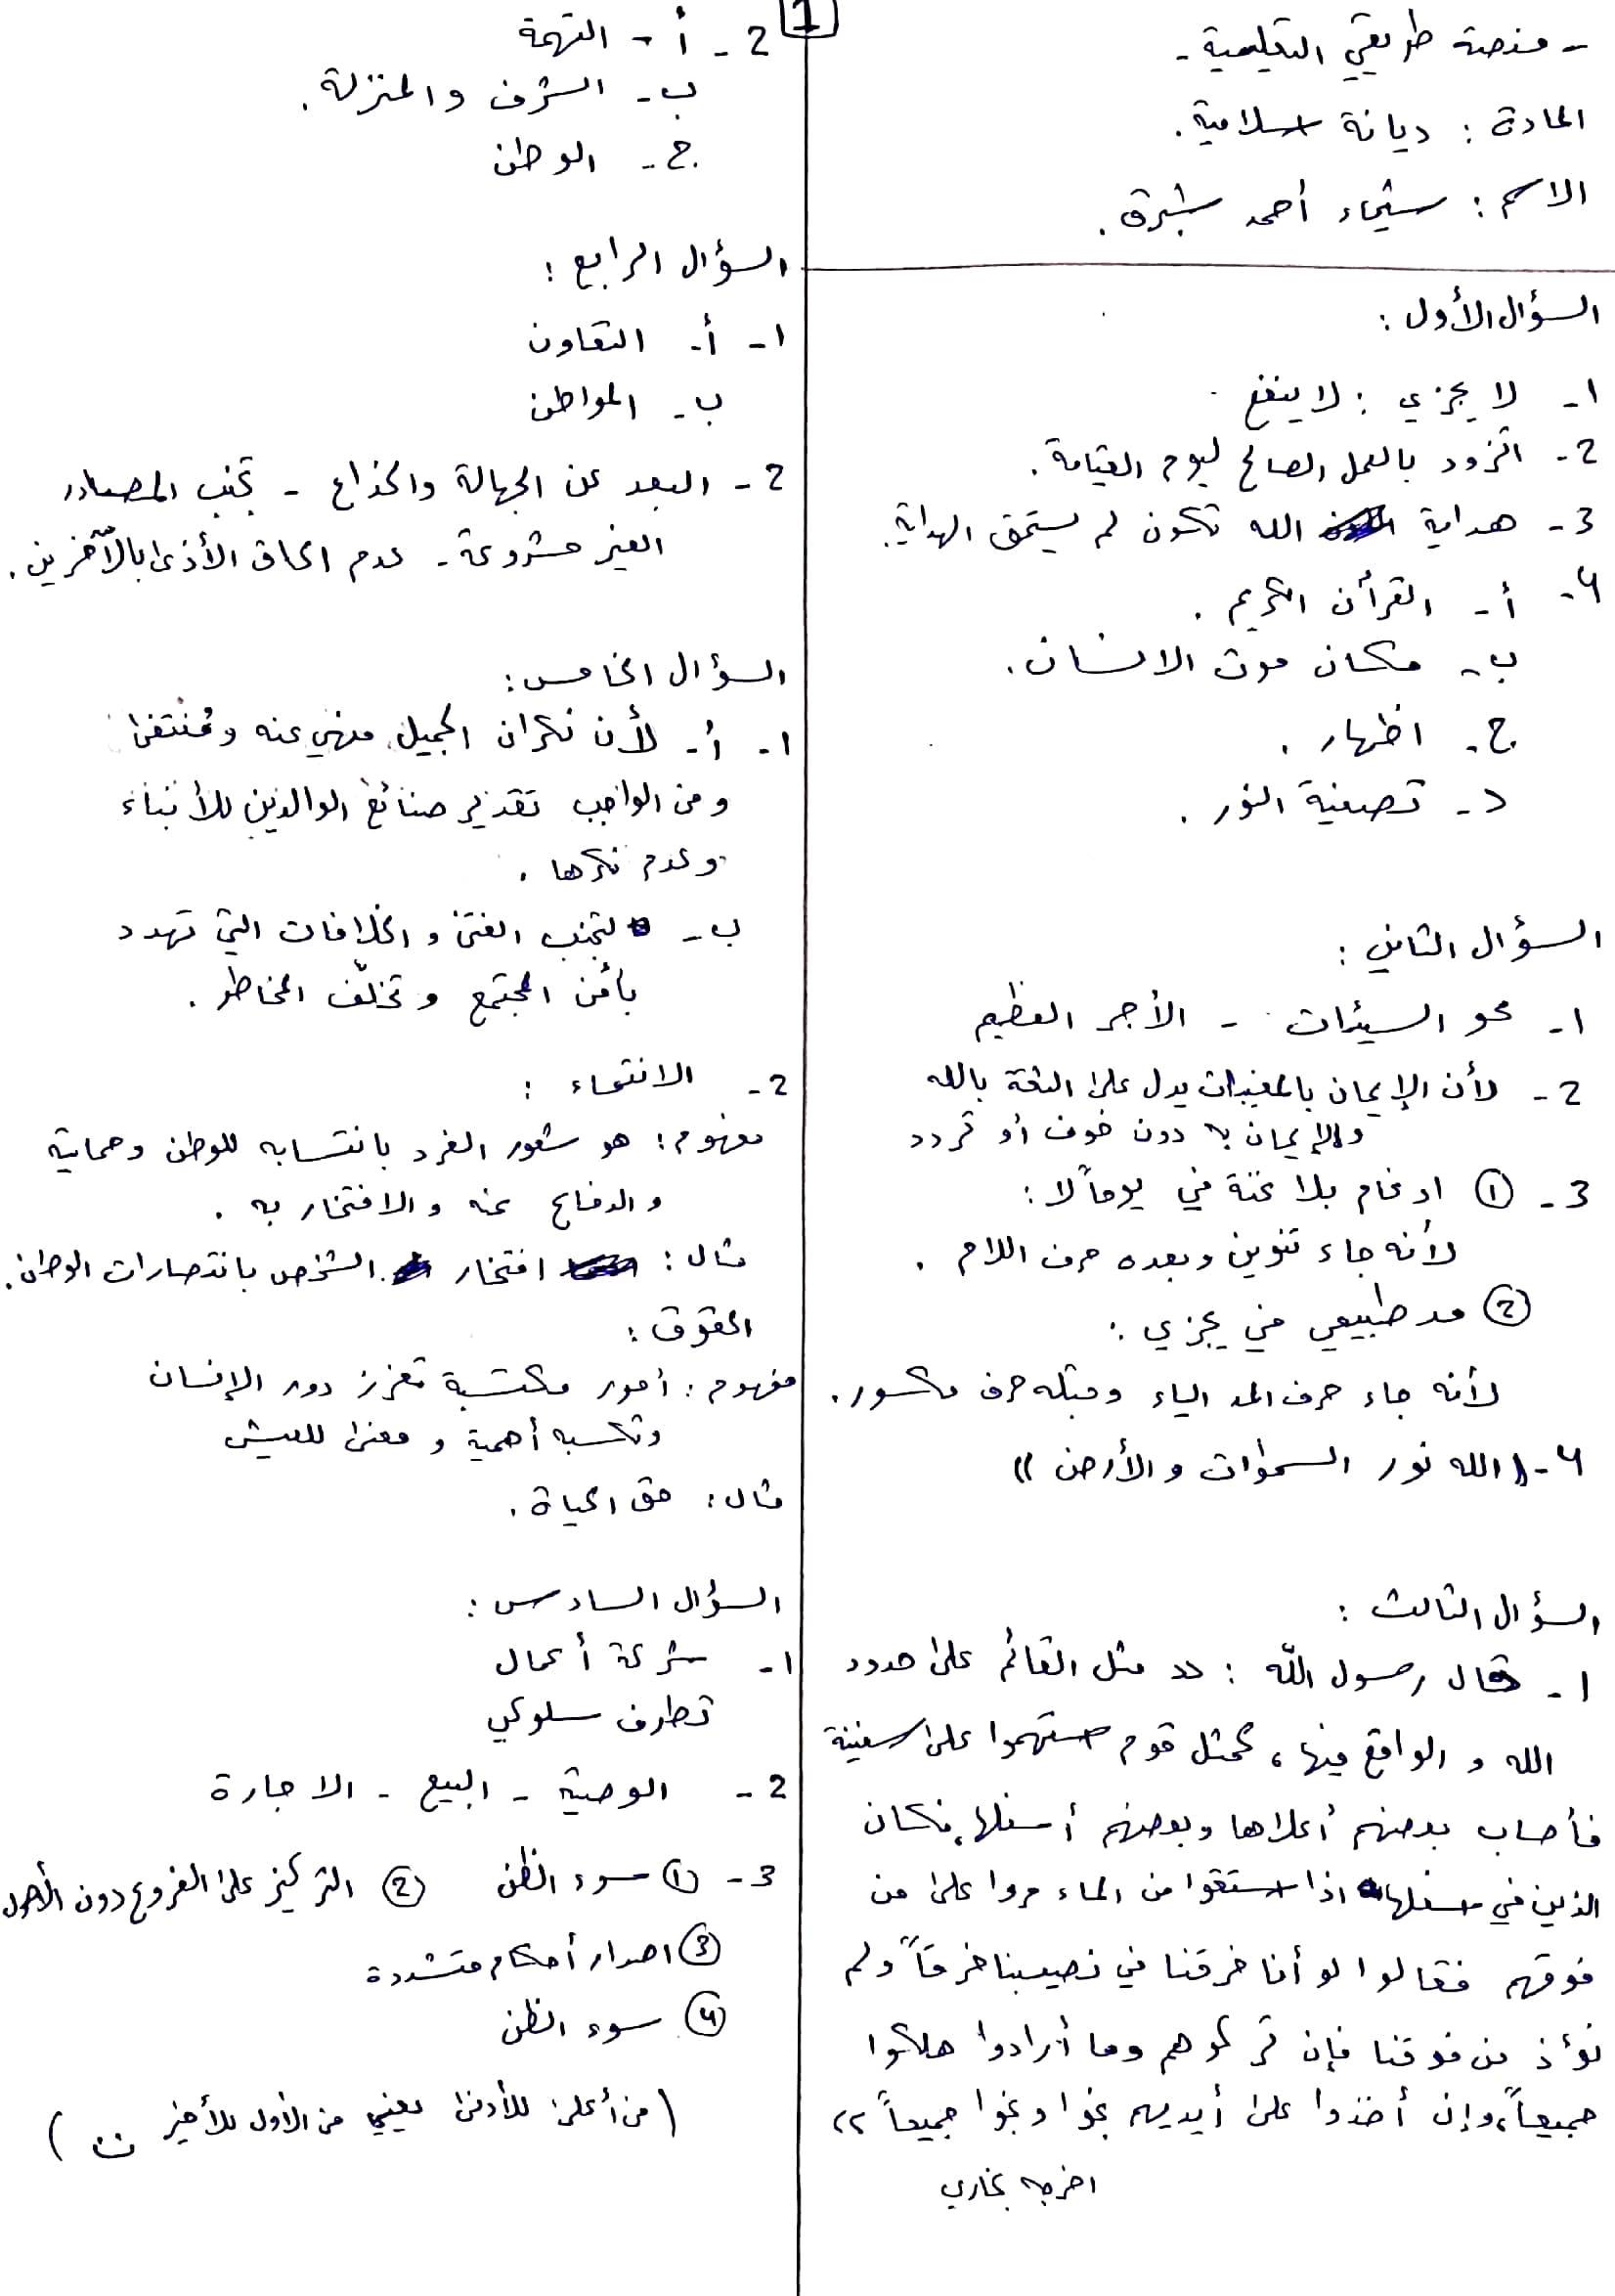 - منصة طريقي التعليمية -
المادة : ديانة اسلامية .
الاسم : شيماء أحمد شبرق .
السؤال الأول :
1- لا يجزي : لا ينفع .
2- التزود بالعمل الصالح ليوم القيامة .
3- هداية الله تكون لم يستحق الهداية .
4- أ - القرآن الكريم .
ب - مكان موت الانسان .
ج - اظهار .
د - تصفية النور .
السؤال الثاني :
1- محو السيئات - الأجر العظيم
2- لأن الإيمان بالمغيبات يدل على الثقة بالله
والإيمان به دون خوف أو تردد
3- ① ادغام بلا غنة في يوماً لا :
لأنه جاء تنوين وبعده حرف اللام .
② مد طبيعي في يجزي :
لأنه جاء حرف المد الياء وقبله حرف مكسور .
4- (( الله نور السموات والأرض ))
السؤال الثالث :
1- قال رسول الله : << مثل القائم على حدود
الله و الواقع فيها ، كمثل قوم استهموا على سفينة
فأصاب بعضهم أعلاها وبعضهم أسفلها ، فكان
الذين في اسفلها اذا استقوا من الماء مروا على من
فوقهم فقالوا لو أنا خرقنا في نصيبنا خرقاً ولم
نؤذ من فوقنا فإن تركوهم وما أرادوا هلكوا
جميعاً، وإن أخذوا على أيديهم نجوا ونجوا جميعاً >>
اخرجه بخاري
1
2- أ - التهمة
ب - الشرف والمنزلة .
ج - الوطن
السؤال الرابع :
1- أ - التعاون
ب - المواطن
2- البعد عن الجهالة والخداع - تجنب المصادر
الغير مشروعة - عدم الحاق الأذى بالآخرين .
السؤال الخامس :
1- أ - لأن نكران الجميل منهي عنه
ومن الواجب تقدير صنائع الوالدين للأبناء
وعدم نكرها .
ب - لتجنب الفتن و الخلافات التي تهدد
بأمن المجتمع و تخلّف المخاطر .
2- الانتماء :
مفهوم : هو شعور الفرد بانتسابه للوطن وحمايته
و الدفاع عنه و الافتخار به .
مثال : افتخار الشخص بانتصارات الوطن .
الحقوق :
مفهوم : أمور مكتسبة تعزز دور الإنسان
وتكسبه أهمية و معنى للعيش
مثال : حق الحياة .
السؤال السادس :
1- شركة أعمال
تطارف سلوكي
2- الوصية - البيع - الاجارة
3- ① سوء الظن ② التركيز على الفروع دون الأصول
③ اصدار أحكام متشددة
④ سوء الظن
( من أعلى للأدنى يعني من الأول للأخير )